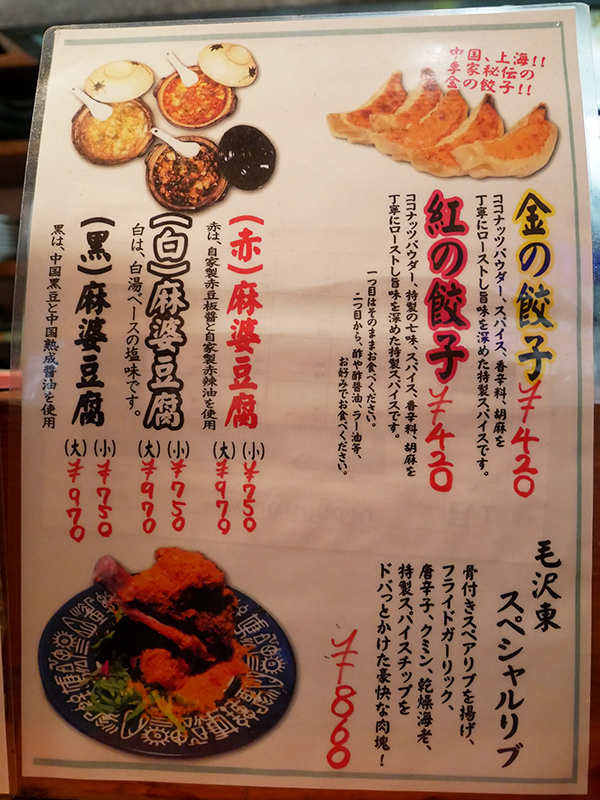 中国、上海!!
専家秘伝の
金の餃子!!
金の餃子¥420
ココナッツパウダー、スパイス、香辛料、胡麻を
丁寧にローストし旨味を深めた特製スパイスです。
紅の餃子¥420
ココナッツパウダー、特製の七味、スパイス、香辛料、胡麻を
丁寧にローストし旨味を深めた特製スパイスです。
一つ目はそのままお食べください。
二つ目から、酢や酢醤油、ラー油等、
お好みでお食べください。
(赤)麻婆豆腐
(小)¥750
(大)¥970
赤は、自家製赤豆板醤と自家製赤辣油を使用
(白)麻婆豆腐
(小)¥750
(大)¥970
白は、白湯ベースの塩味です。
(黒)麻婆豆腐
(小)¥750
(大)¥970
黒は、中国黒豆と中国熟成醤油を使用
毛沢東
スペシャルリブ
骨付きスペアリブを揚げ、
フライドガーリック、
唐辛子、クミン、乾燥海老、
特製スパイスチップを
ドバっとかけた豪快な肉塊!
¥860